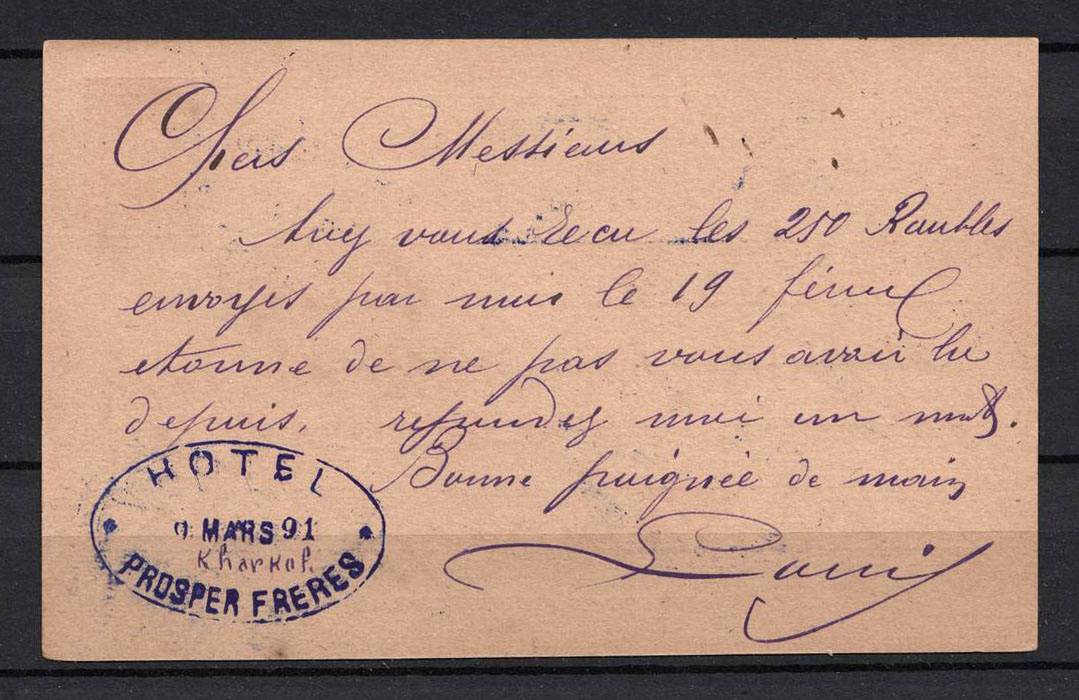 Chers Messieurs
Avez vous recu les 250 Roubles
envoyés par moi le 19 février
etonné de ne pas vous avoir lu
depuis. repondez moi un mot.
Bonne poignée de main
Louis
HOTEL
9 MARS 91
Kharkof
PROSPER FRERES